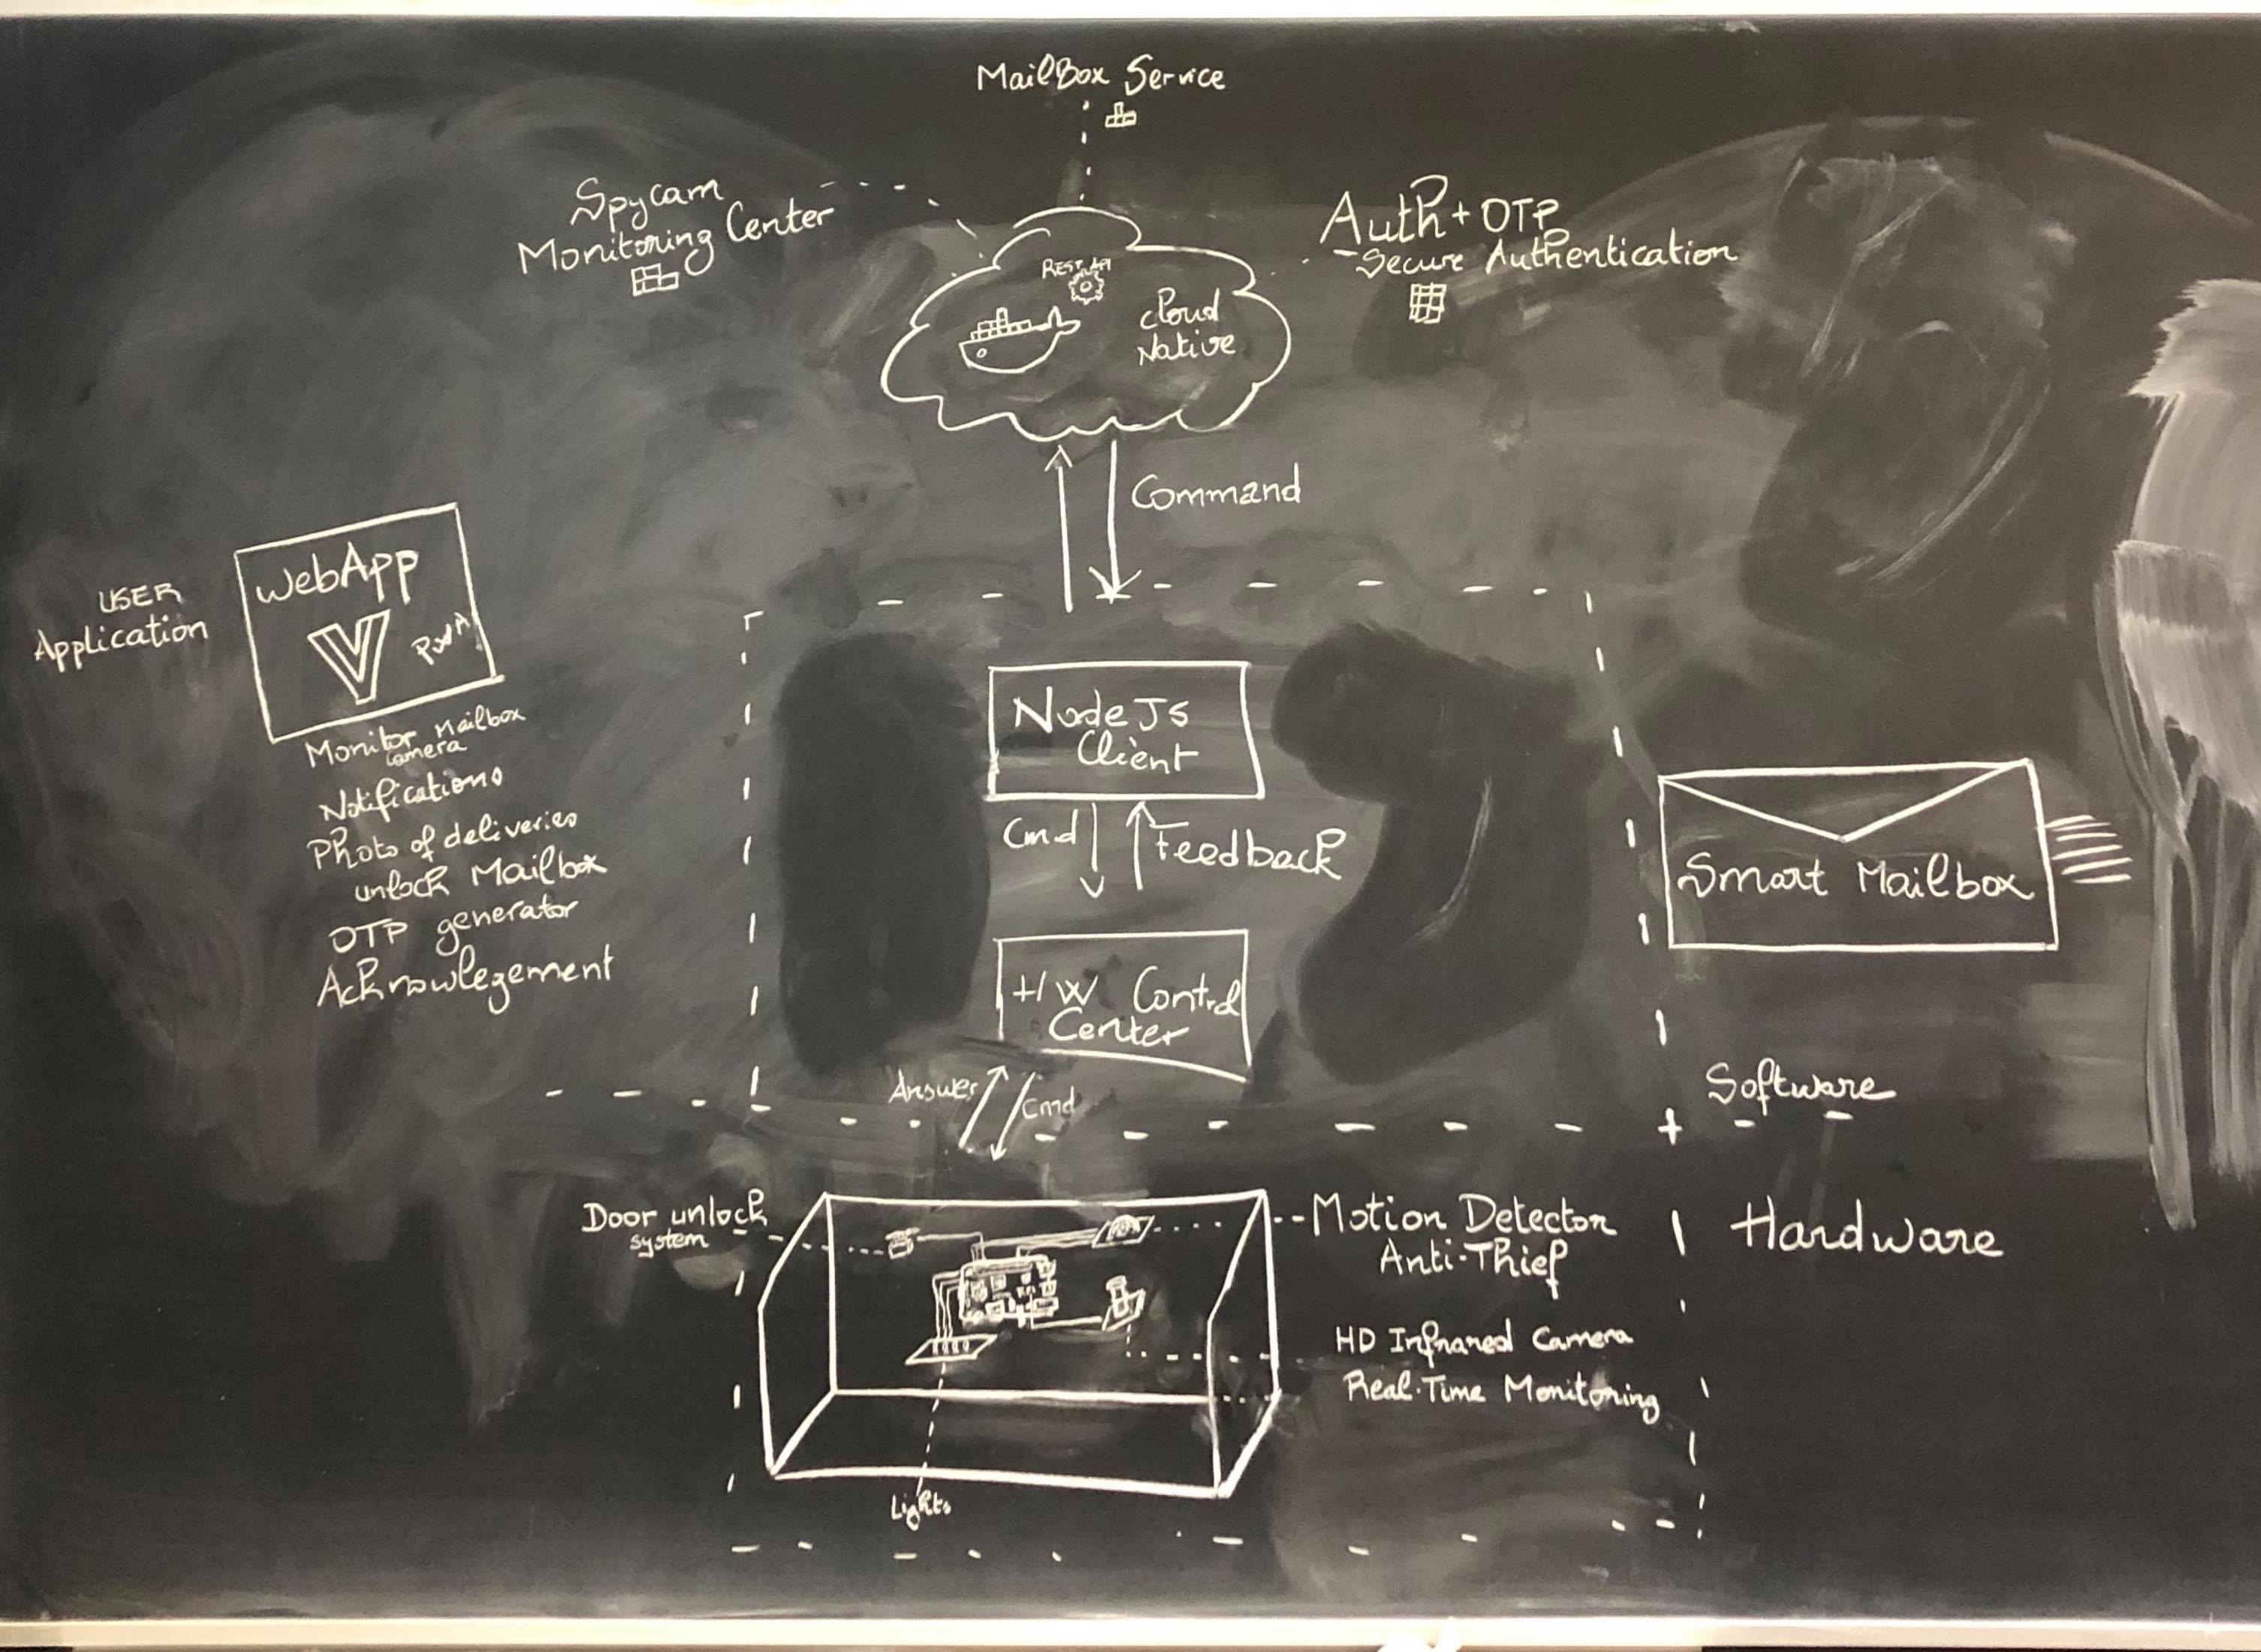 MailBox Service
Spycam
Monitoring Center
Auth + OTP
Secure Authentication
REST API
Cloud
Native
Command
USER
Application
WebApp
PWA
Monitor Mailbox
Camera
Notifications
Photo of deliveries
unlock Mailbox
OTP generator
Acknowlegement
Node Js
Client
Cmd
Feedback
H/W Control
Center
Smart Mailbox
Answer
Cmd
Software
Hardware
Door unlock
system
Motion Detector
Anti-Thief
HD Infrared Camera
Real-Time Monitoring
Lights